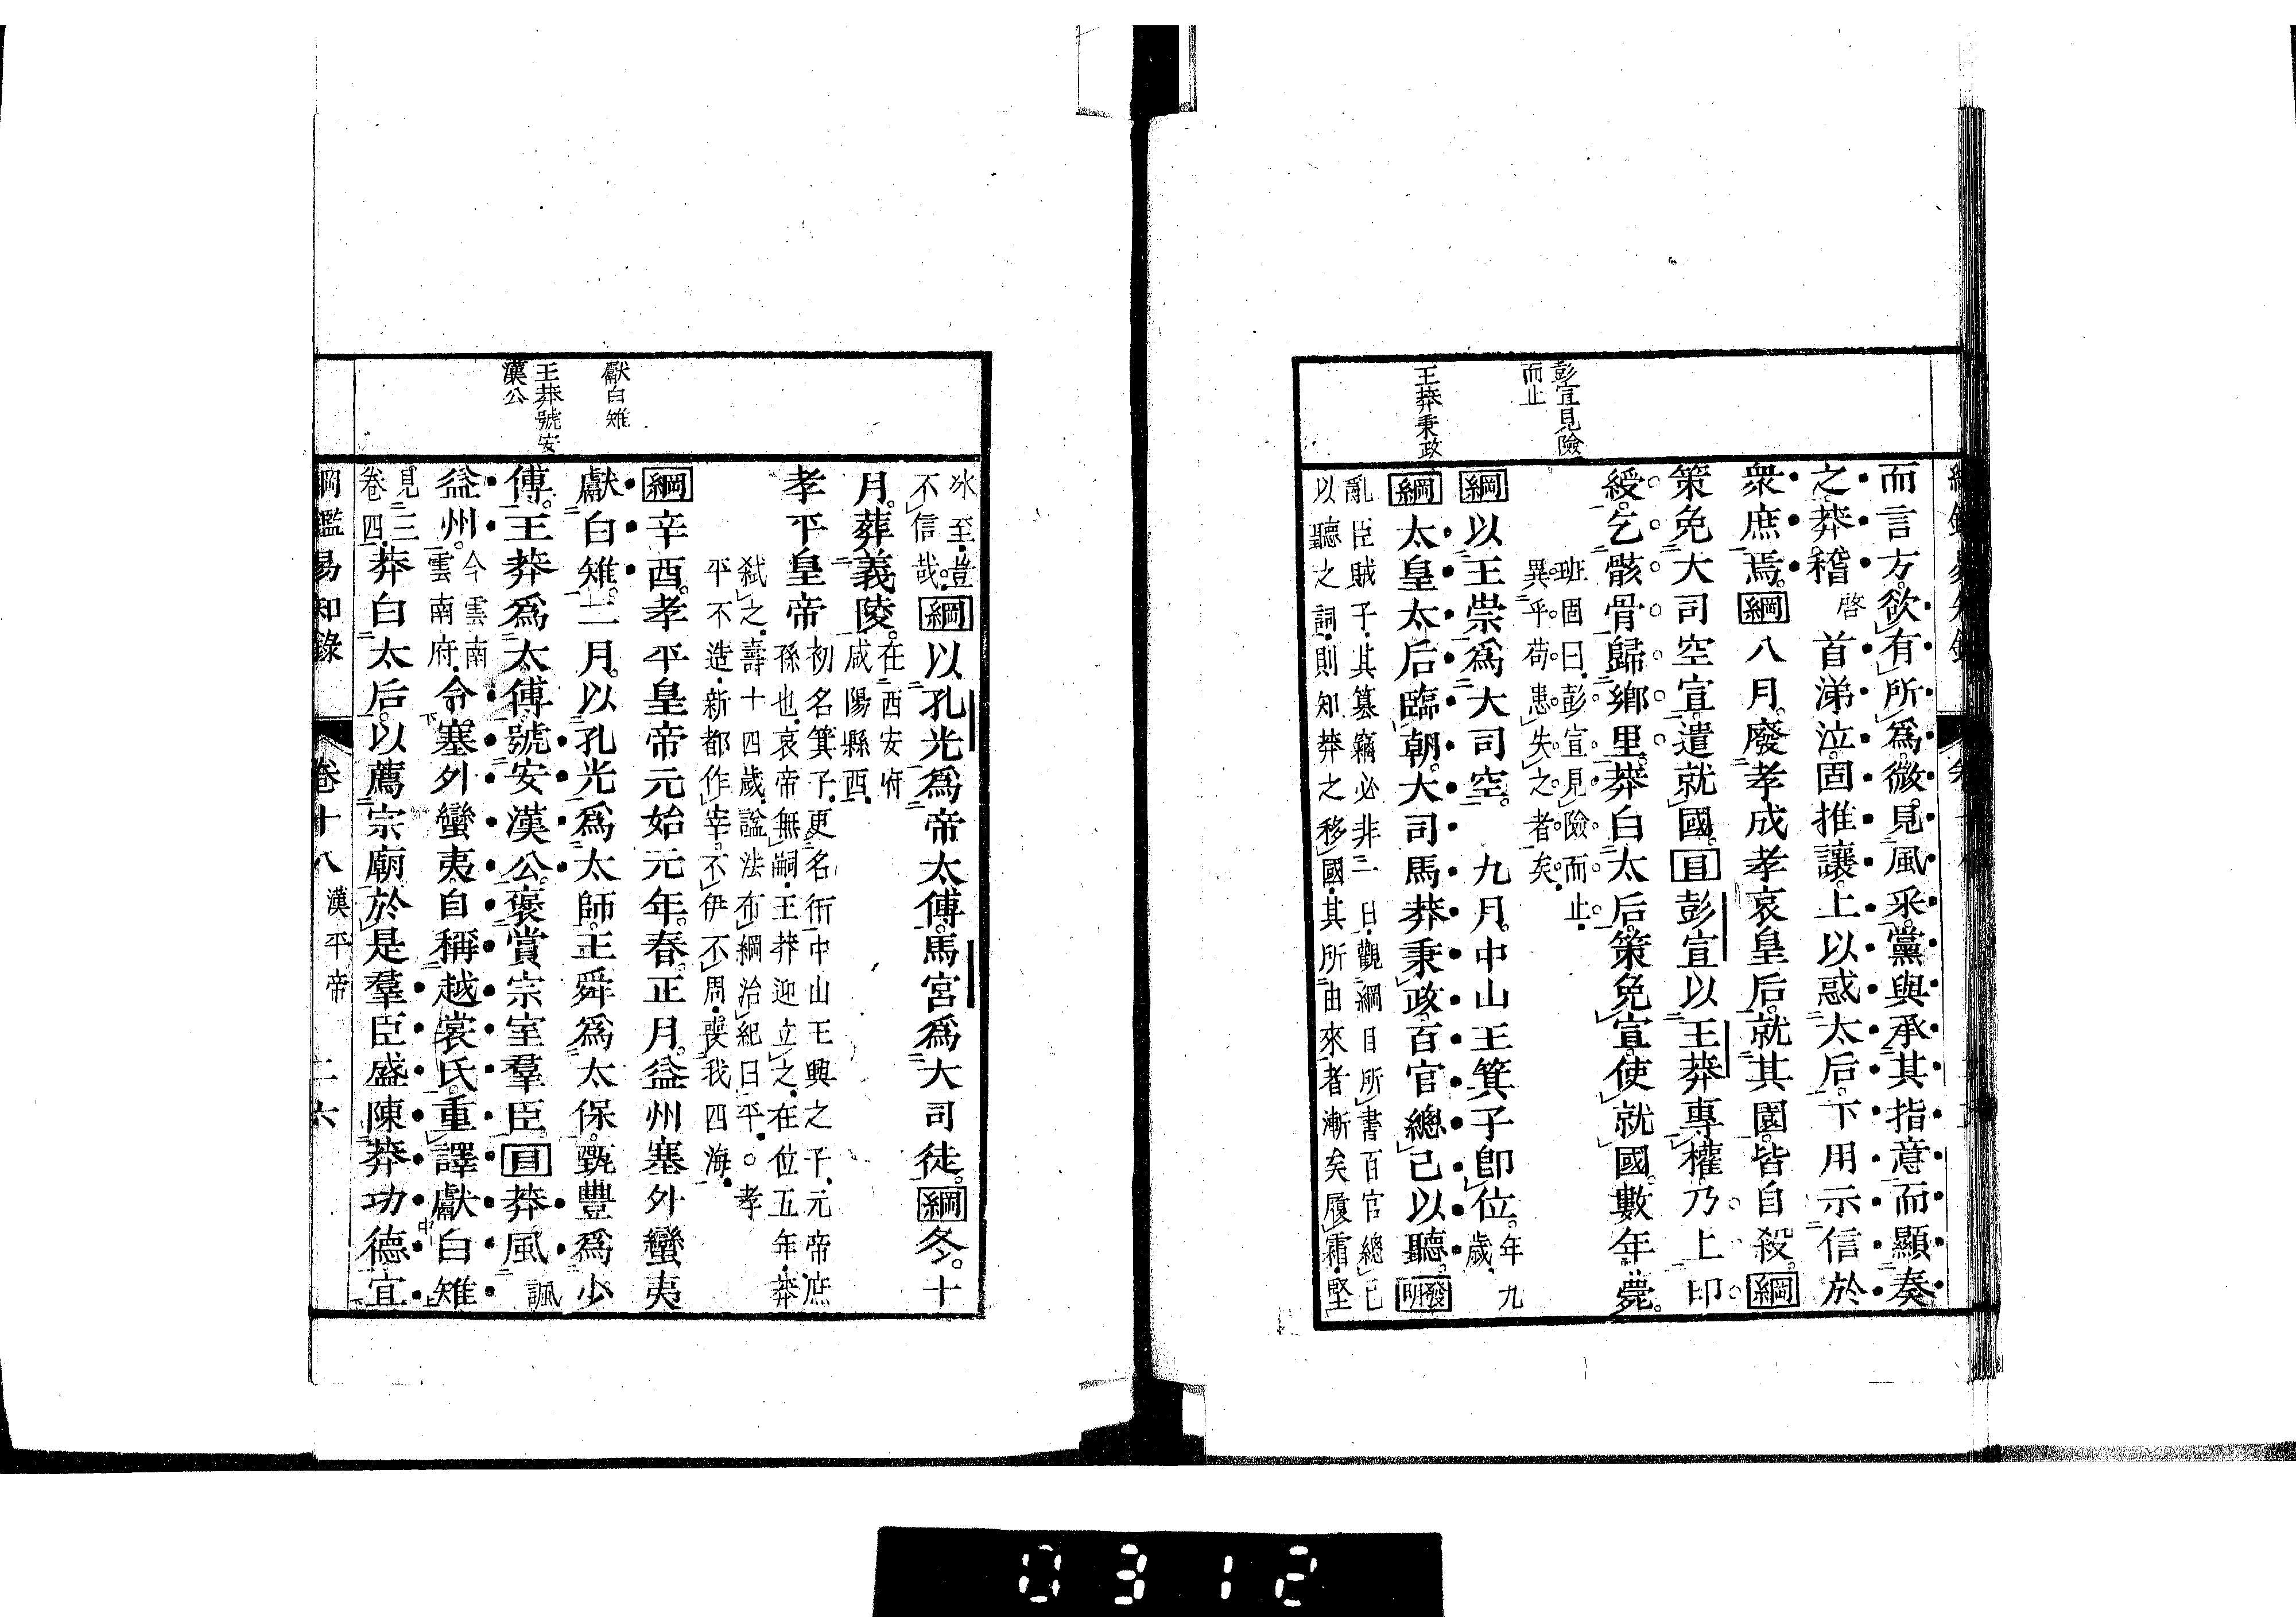 彭宣見險
而止
王莽秉政
而言方。欲有所爲。微見風采。黨與承其指意而顯奏
之。莽稽啓首涕泣。固推讓。上以惑太后。下用示信於
衆庶焉。綱八月。廢孝成孝哀皇后。就其園。皆自殺。綱
策免大司空宣。遣就國。目彭宣以王莽專權。乃上印
綬。乞骸骨歸鄉里。莽白太后。策免宣。使就國。數年。薨。
班固曰。彭宣見險而止。
異乎苟患失之者矣。
綱以王崇爲大司空。九月。中山王箕子卽位。年九歲。
綱太皇太后臨朝。大司馬莽秉政。百官總己以聽。發明
亂臣賊子。其篡竊必非一日。觀綱目所書百官總己
以聽之詞。則知莽之移國。其所由來者漸矣。履霜。堅
獻白雉
王莽號安
漢公
冰至。豈
不信哉。綱以孔光爲帝太傅。馬宮爲大司徒。綱冬。十
月。葬義陵。在西安府
咸陽縣西。
孝平皇帝初名箕子。更名衎。中山王興之子。元帝庶
孫也。哀帝無嗣。王莽迎立之。在位五年。莽
弑之。壽十四歲。諡法布綱治紀曰平。○孝
平不造。新都作宰。不伊不周。喪我四海。
綱辛酉。孝平皇帝元始元年。春。正月。益州塞外蠻夷
獻白雉。二月。以孔光爲太師。王舜爲太保。甄豐爲少
傅。王莽爲太傅。號安漢公。褒賞宗室羣臣。目莽風諷
益州。今雲南
雲南府。令塞外蠻夷。自稱越裳氏。重譯獻白雉。
見三
卷四。莽白太后。以薦宗廟。於是羣臣盛陳莽功德。宜
綱鑑易知錄　卷十八　漢平帝　二六
0312